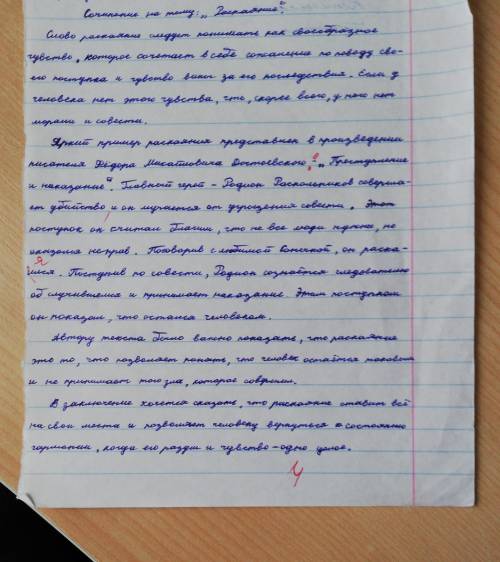 Сочинение на тему: „Раскаяние".
Слово раскаяние следует понимать как своеобразное
чувство, которое сочетает в себе сожаление по поводу сво-
его поступка и чувство вины за его последствия. Если у
человека нет этого чувства, что, скорее всего, у него нет
морали и совести.
Яркий пример раскаяния представлен в произведении
писателя Фёдора Михайловича Достоевского - „Преступление
и наказание". Главной герой - Родион Раскольников соверша-
ет убийство и он мучается от угрощения совести. Этот
поступок он считал благим, что не все люди нужны, но
оказался не прав. Поговорив с любимой Сонечкой, он раска-
ился. Поступив по совести, Родион сознаётся следователю
об случившемся и принимает наказание. Этим поступком
он показал, что остался человеком.
Автору текста было важно показать, что раскаяние
это то, что позволяет понять, что человек остаётся таковым
и не принимает того зла, которое совершил.
В заключение хочется сказать, что раскаяние ставит всё
на свои места и позволяет человеку вернуться к состоянию
гармонии, когда его разум и чувство - одно целое.
4